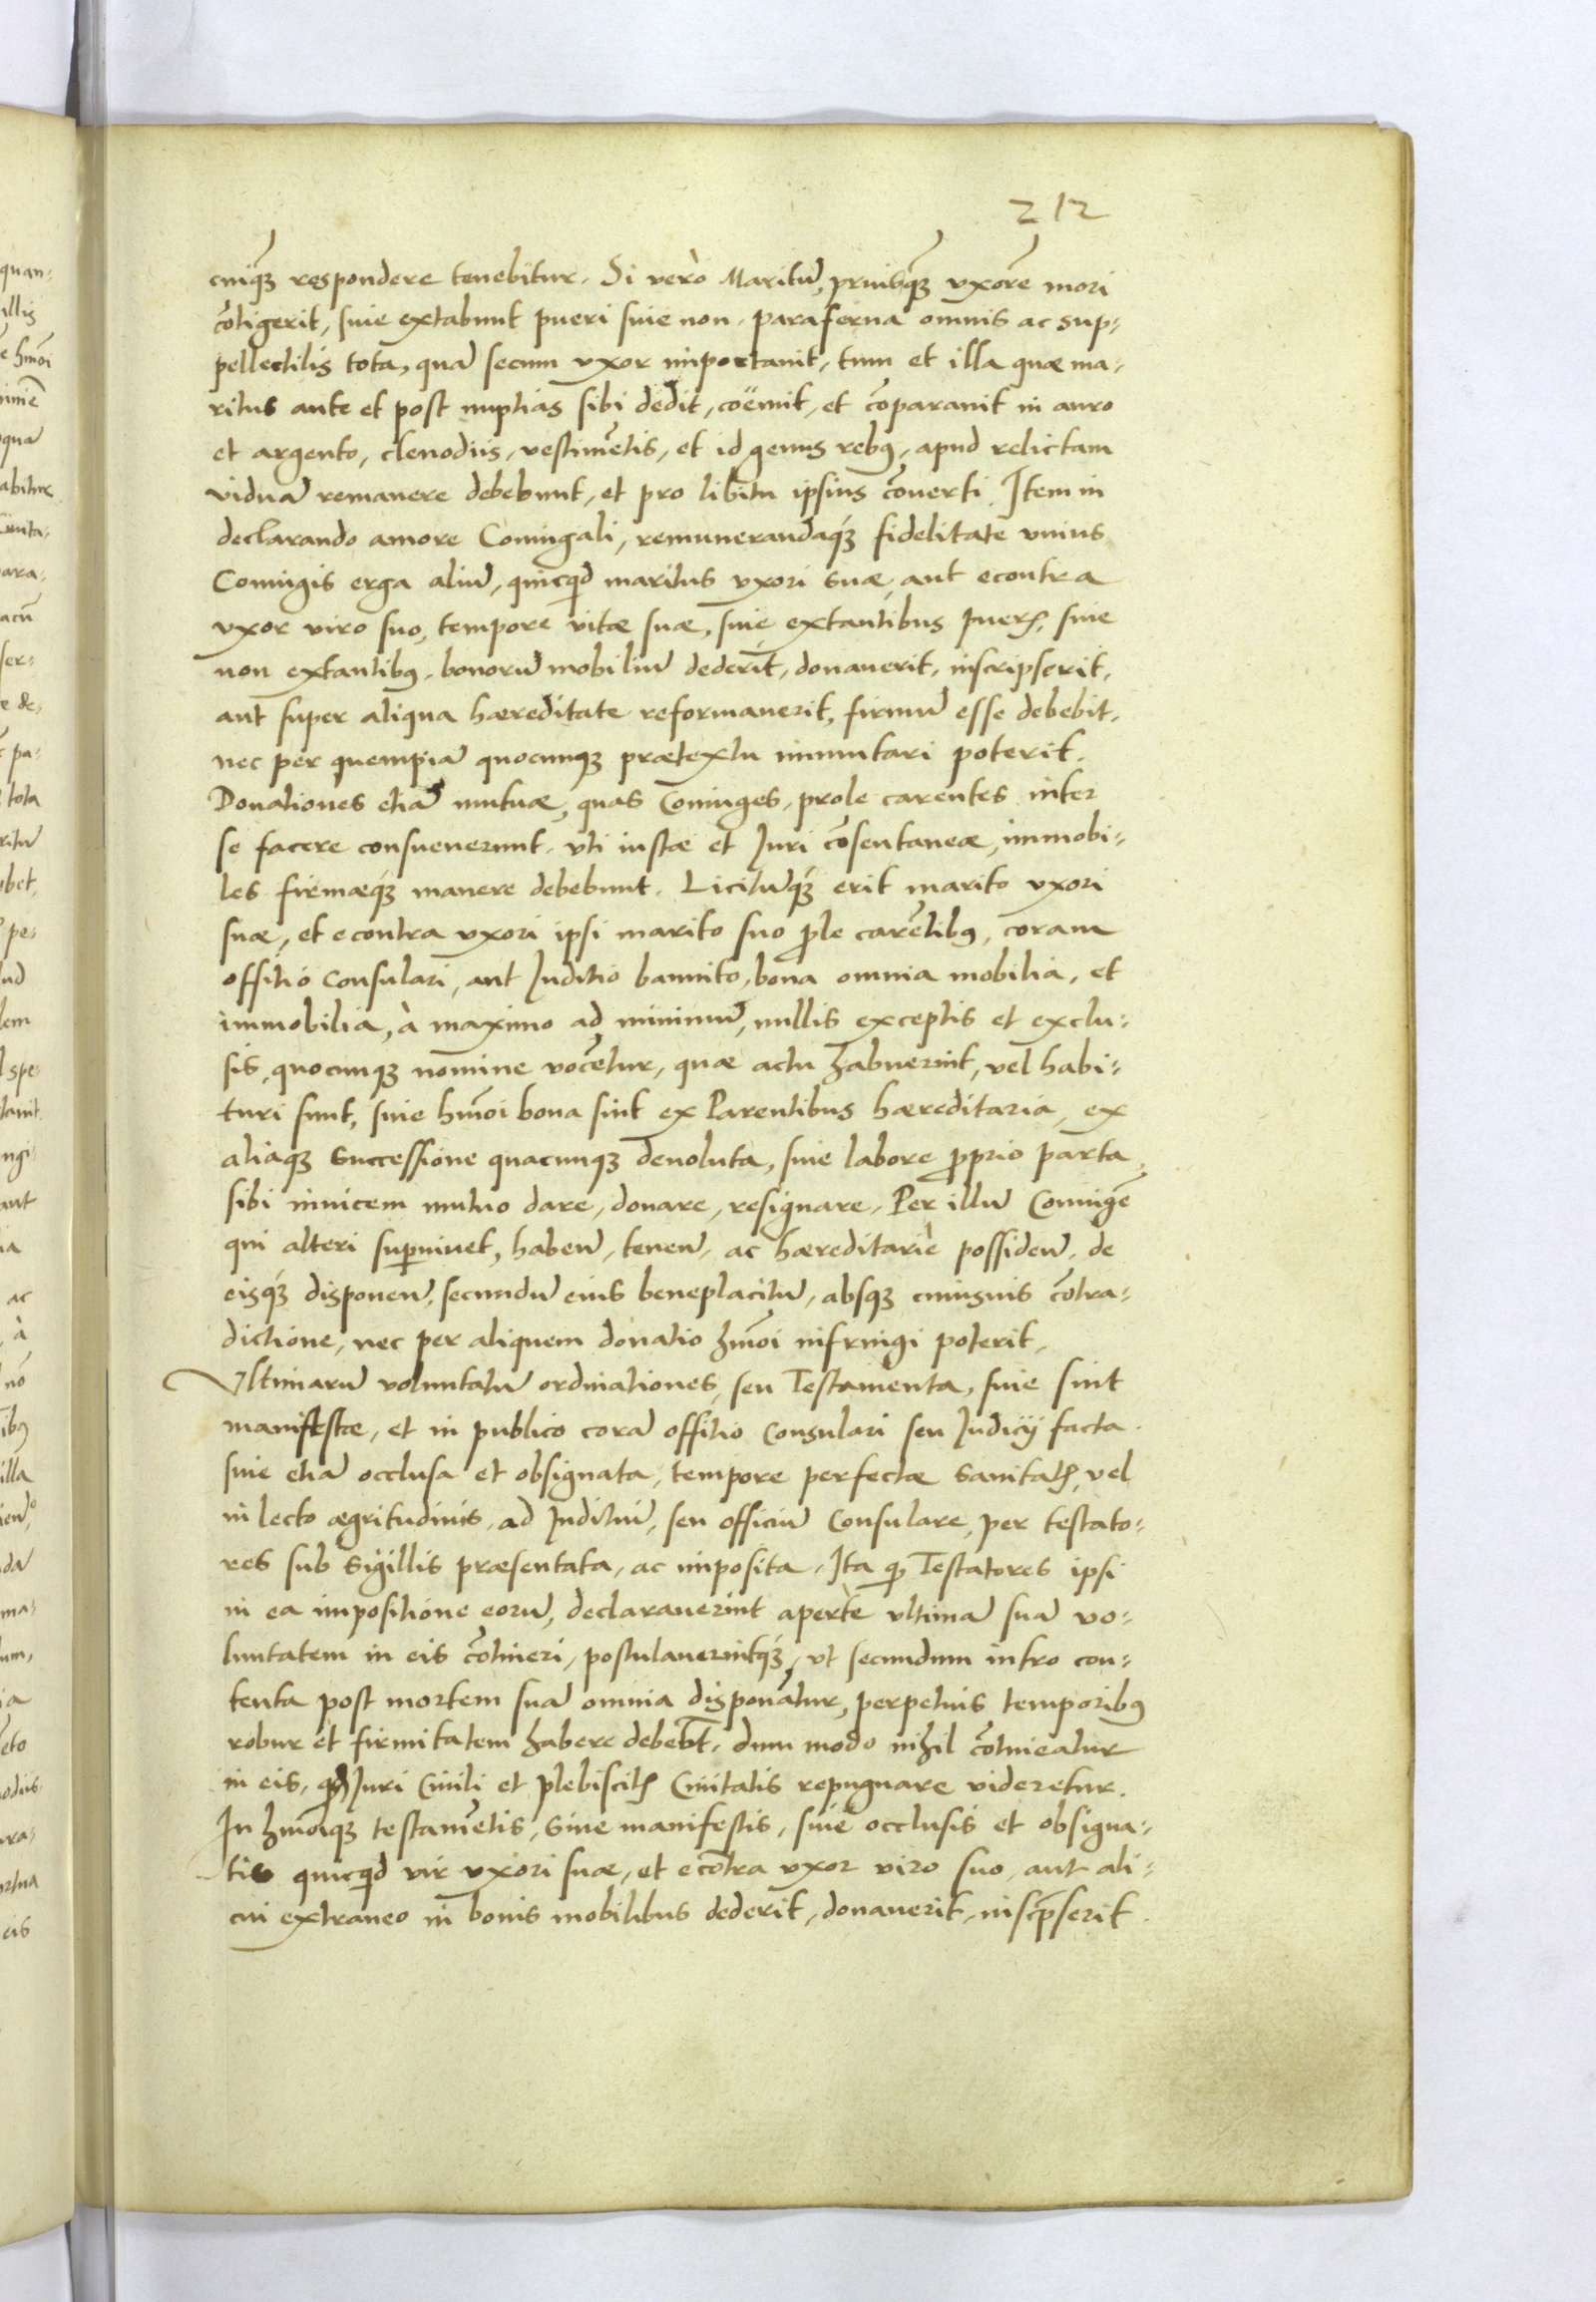 212
cuiq̃ȝ respondere tenebitur. Si verò Maritũ, priusq̃ȝ vxorẽ mori
cõtigerit, siue extabunt pueri siue non. parafèrna omnis ac sup:
pellectilis tota, quã secum vxor importauit, tum et illa quæ ma:
ritus ante et post nuptias sibi dedit, coëmit, et cõparauit in auro
et argento, clenodiis, vestimẽtis, et id genus rebꝯ, apud relictam
viduã remanere debebunt, et pro libitu ipsius cõuerti. Item in
declarando amore Coniugali, remunerandaq́ȝ fidelitate vnius
Coniugis erga aliũ, quicqđ maritus vxori suæ, aut econtra
vxor viro suo, tempore vitæ suæ, siue extantibus puerꝭ, siue
non extantibꝯ, bonorũ mobiliũ dederit, donauerit, inscripserit,
aut super aliqua hæreditate reformauerit, firmũ esse debebit,
nec per quempiã quocunqȝ prætextu immutari poterit.
Donationes etiã mutuæ, quas Coniuges, prole carentes inter
se facere consueuerunt, vti iustæ et Juri cõsentaneæ, immobi:
les firmæq́ȝ manere debebunt. Licitũq́ȝ erit marito vxori
suæ, et econtra vxori ipsi marito suo ꝓle carẽtibꝯ, coram
offitio Consulari, aut Juditio bannito, bona omnia mobilia, et
immobilia, à maximo ad minimũ, nullis exceptis et exclu:
sis, quocunqȝ nomine vocẽtur, quæ actu habuerint, vel habi:
turi sunt, siue hm̃oi bona sint ex Parentibus hæreditaria, ex
aliaqȝ successione quacunqȝ deuoluta, siue labore ꝓprio parta,
sibi inuicem mutuo dare, donare, resignare. Per illũ Coniugẽ
qui alteri suꝑuiuet, habeñ, teneñ, ac hæreditariè possideñ, de
eisq́ȝ disponeñ, secundũ eius beneplacitũ, absqȝ cuiusuis cõtra:
dictione, nec per aliquem donatio hm̃oi infringi poterit.
Vltimarũ voluntatũ ordinationes, seu Testamenta, siue sint
manifestæ, et in publico corã offitio Consulari seu Judicij facta.
siue etiã occlusa et obsignata, tempore perfectæ sanitatꝭ, vel
in lecto ægritudinis, ad Juditiũ, seu officiũ Consulare, per testato:
res sub sigillis præsentata, ac imposita. Ita ꝙ Testatores ipsi
in ea impositione eorũ, declarauerint apertè vltimã suã vo:
luntatem in eis cõtineri, postulauerintq́ȝ, vt secundum intro con:
tenta post mortem suã omnia disponãtur, perpetuis temporibꝯ
robur et firmitatem habere debeb̃t, dum modo nihil cõtineatur
in eis, qđ Juri Ciuili et plebiscitꝭ Ciuitatis repugnare videretur.
In hm̃oiqȝ testamẽtis, siue manifestis, siue occlusis et obsigna:
tis quicqđ vir vxori suæ, et ecõtra vxor viro suo, aut ali:
cui extraneo in bonis mobilibus dederit, donauerit, inscp̃serit.